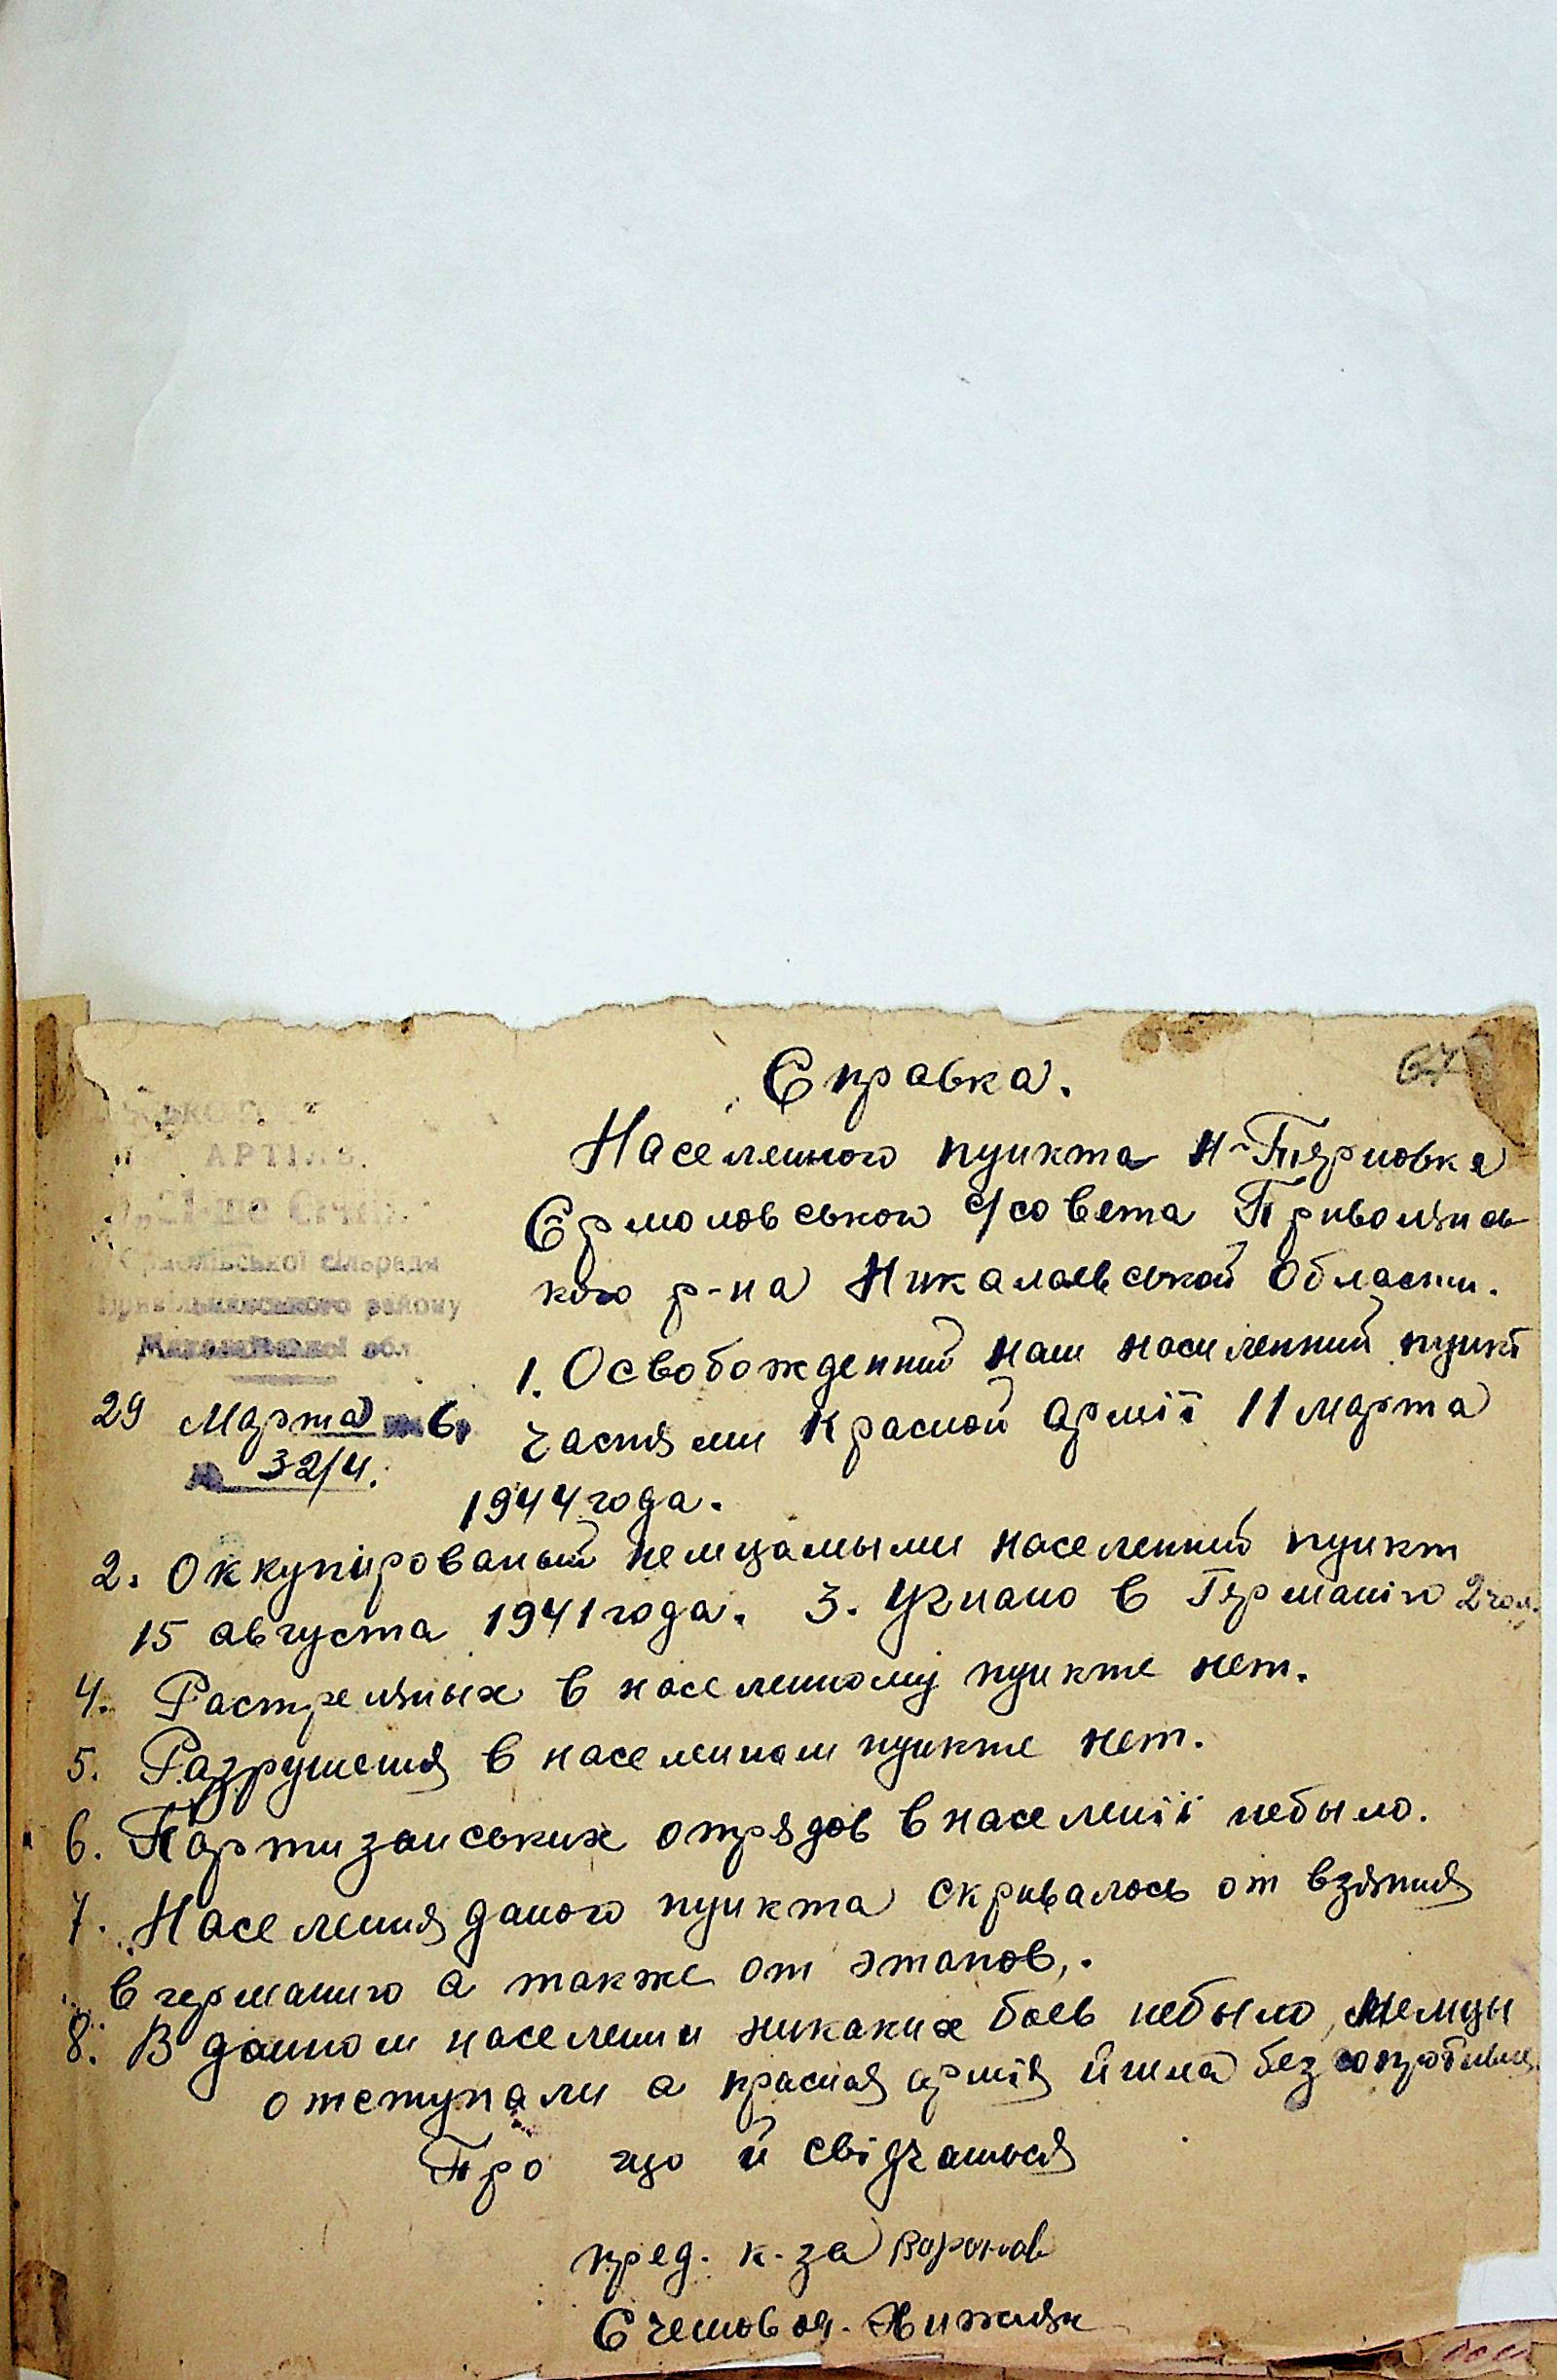 Справка.
67
Населенного пункта Н-Петровка
Ермоловського с/совета Привольнян-
кого р-на Никалаевськой Области.
АРТІЛЬ
21-ше Січня
Єрмолівської сільради
Привільнянського району
Миколаївської обл
1. Освобожденний наш населенний пункт
29 Марта 6.
частями Красной армії 11 марта
32/4.
1944 года.
2. Оккупірованый немцамыми населенний пункт
15 августа 1941 года. 3. Угнано в Германію 2 чол.
4. Растреляных в населенному пункте нет.
5. Разрушения в населенном пункте нет.
6. Партизанських отрядов в населенії небыло.
7. Населения даного пункта скривалось от взятия
в германию а также от этапов,.
8. В данном населении никаких боев небыло, Немцы
отступали а красная армія йшла без сопротивле.
Про що й свідчаться
пред. к-за Воронов
Счетовод. Хижняк